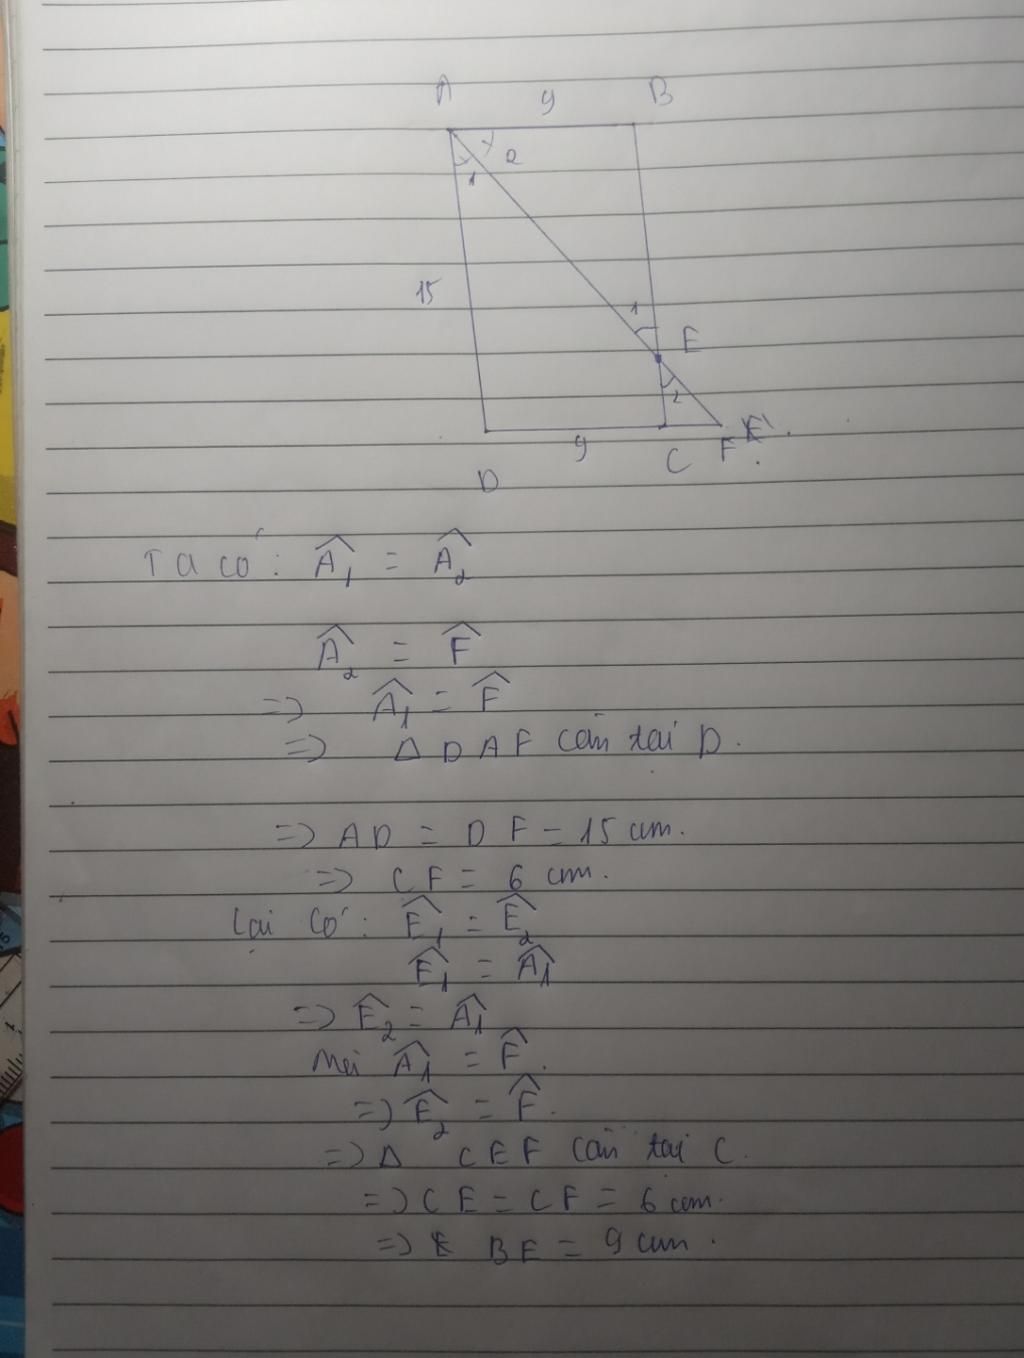 A 9 B
1 2
15
1
E
2
9
D C F
Ta có: Â₁ = Â₂
Â₂ = F̂
=> Â₁ = F̂
=> Δ DAF cân tại D.
=> AD = DF = 15 cm.
=> CF = 6 cm.
Lại có: Ê₁ = Ê₂
Ê₁ = Â₁
=> Ê₂ = Â₁
Mà Â₁ = F̂.
=> Ê₂ = F̂.
=> Δ CEF cân tại C.
=> CE = CF = 6 cm.
=> BE = 9 cm.